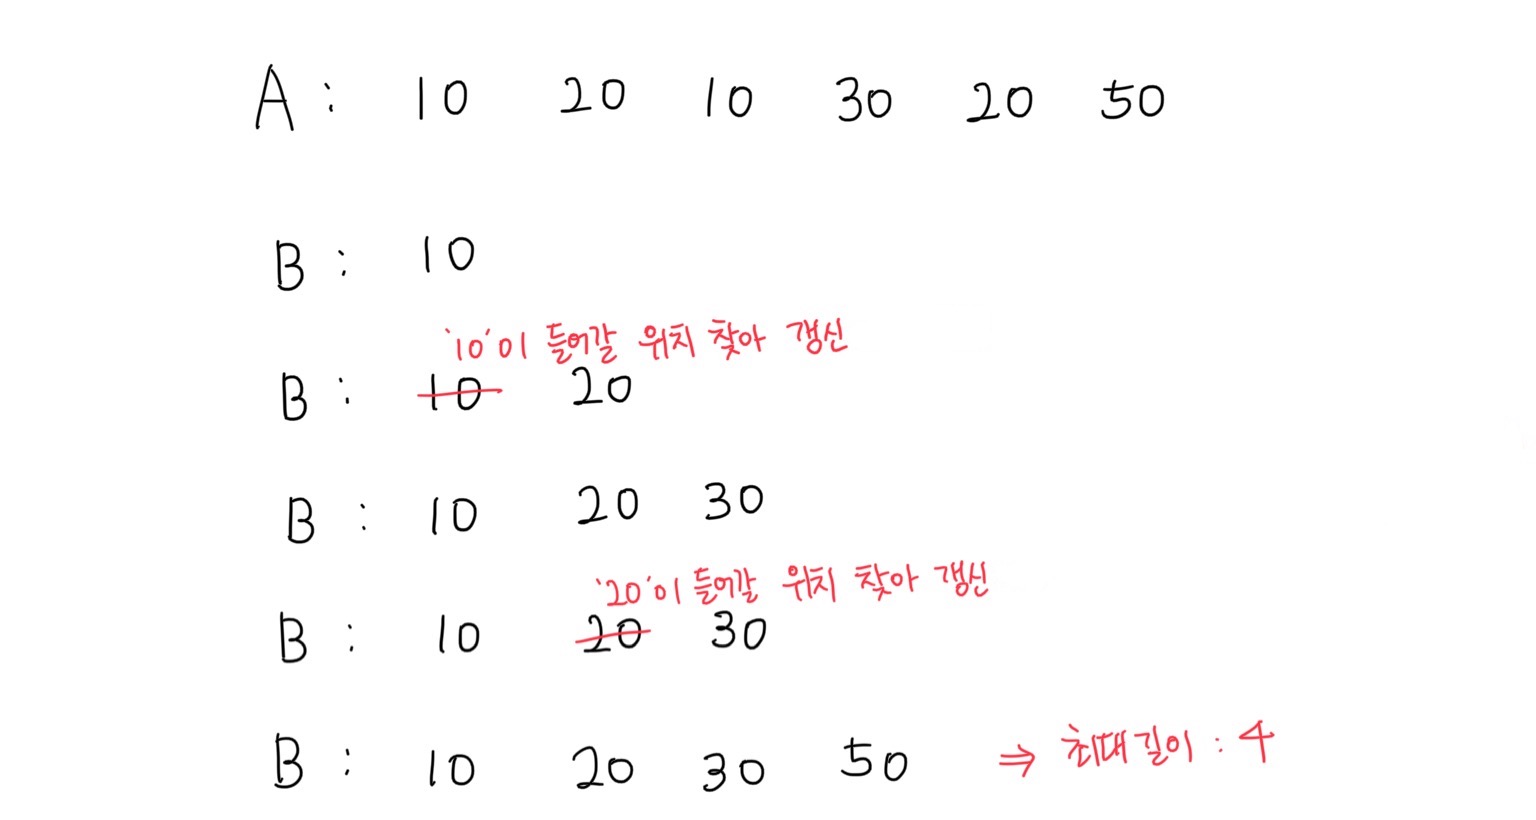 A : 10 20 10 30 20 50
B : 10
'10'이 들어갈 위치 찾아 갱신
B : 10 20
B : 10 20 30
'20'이 들어갈 위치 찾아 갱신
B : 10 20 30
B : 10 20 30 50 ⇒ 최대길이 : 4